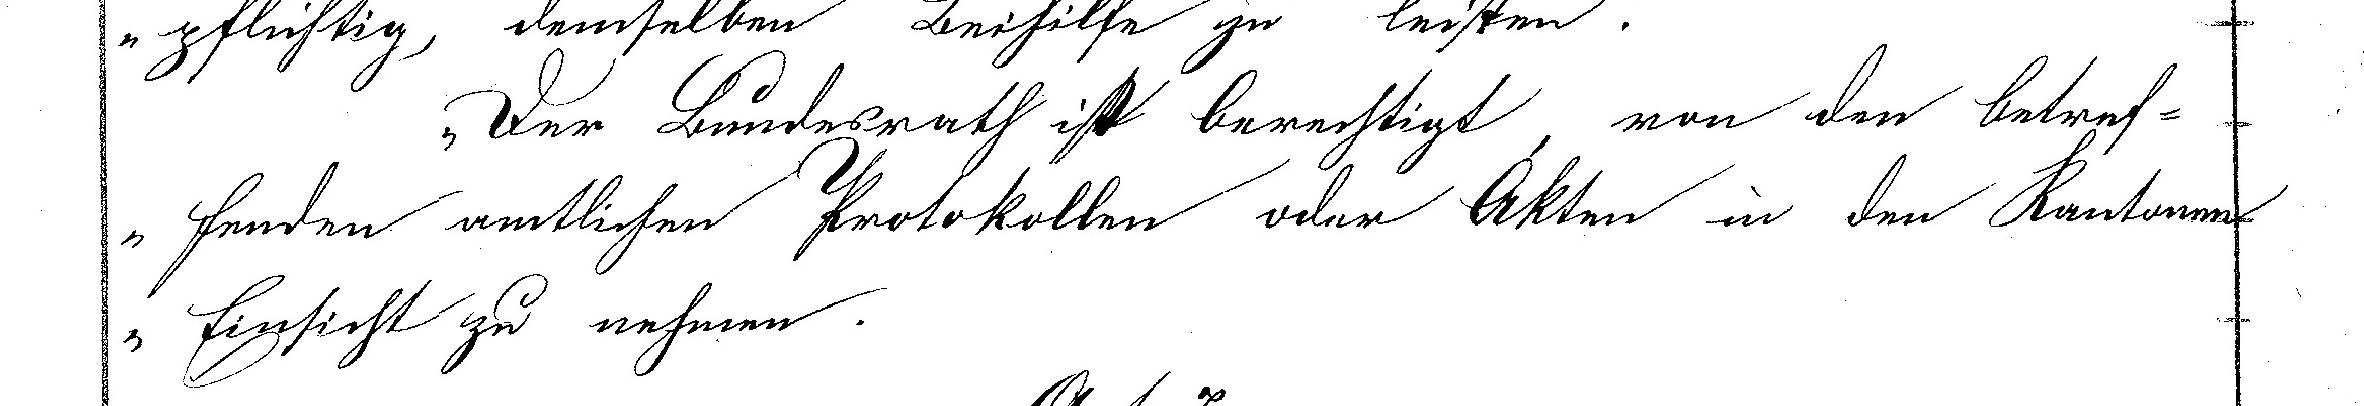 „pflichtig, demselben Beihilfe zu leisten.
„Der Bundesrath ist berechtigt, von den betref=
„fenden amtlichen Protokollen oder Akten in den Kantonen
„Einsicht zu nehmen.